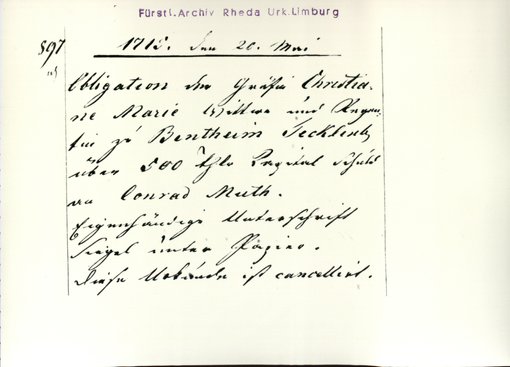 Fürstl. Archiv Rheda Urk. Limburg
897
1715. den 20. Mai
Obligation der Gräfin Christia-
ne Marie Wittwe und Regen-
tin zu Bentheim Tecklenb.
über 500 Thlr Capital schuld
an Conrad Muth.
Eigenhändige Unterschrift
Siegel unter Papier.
Diese Urkunde ist cancellirt.